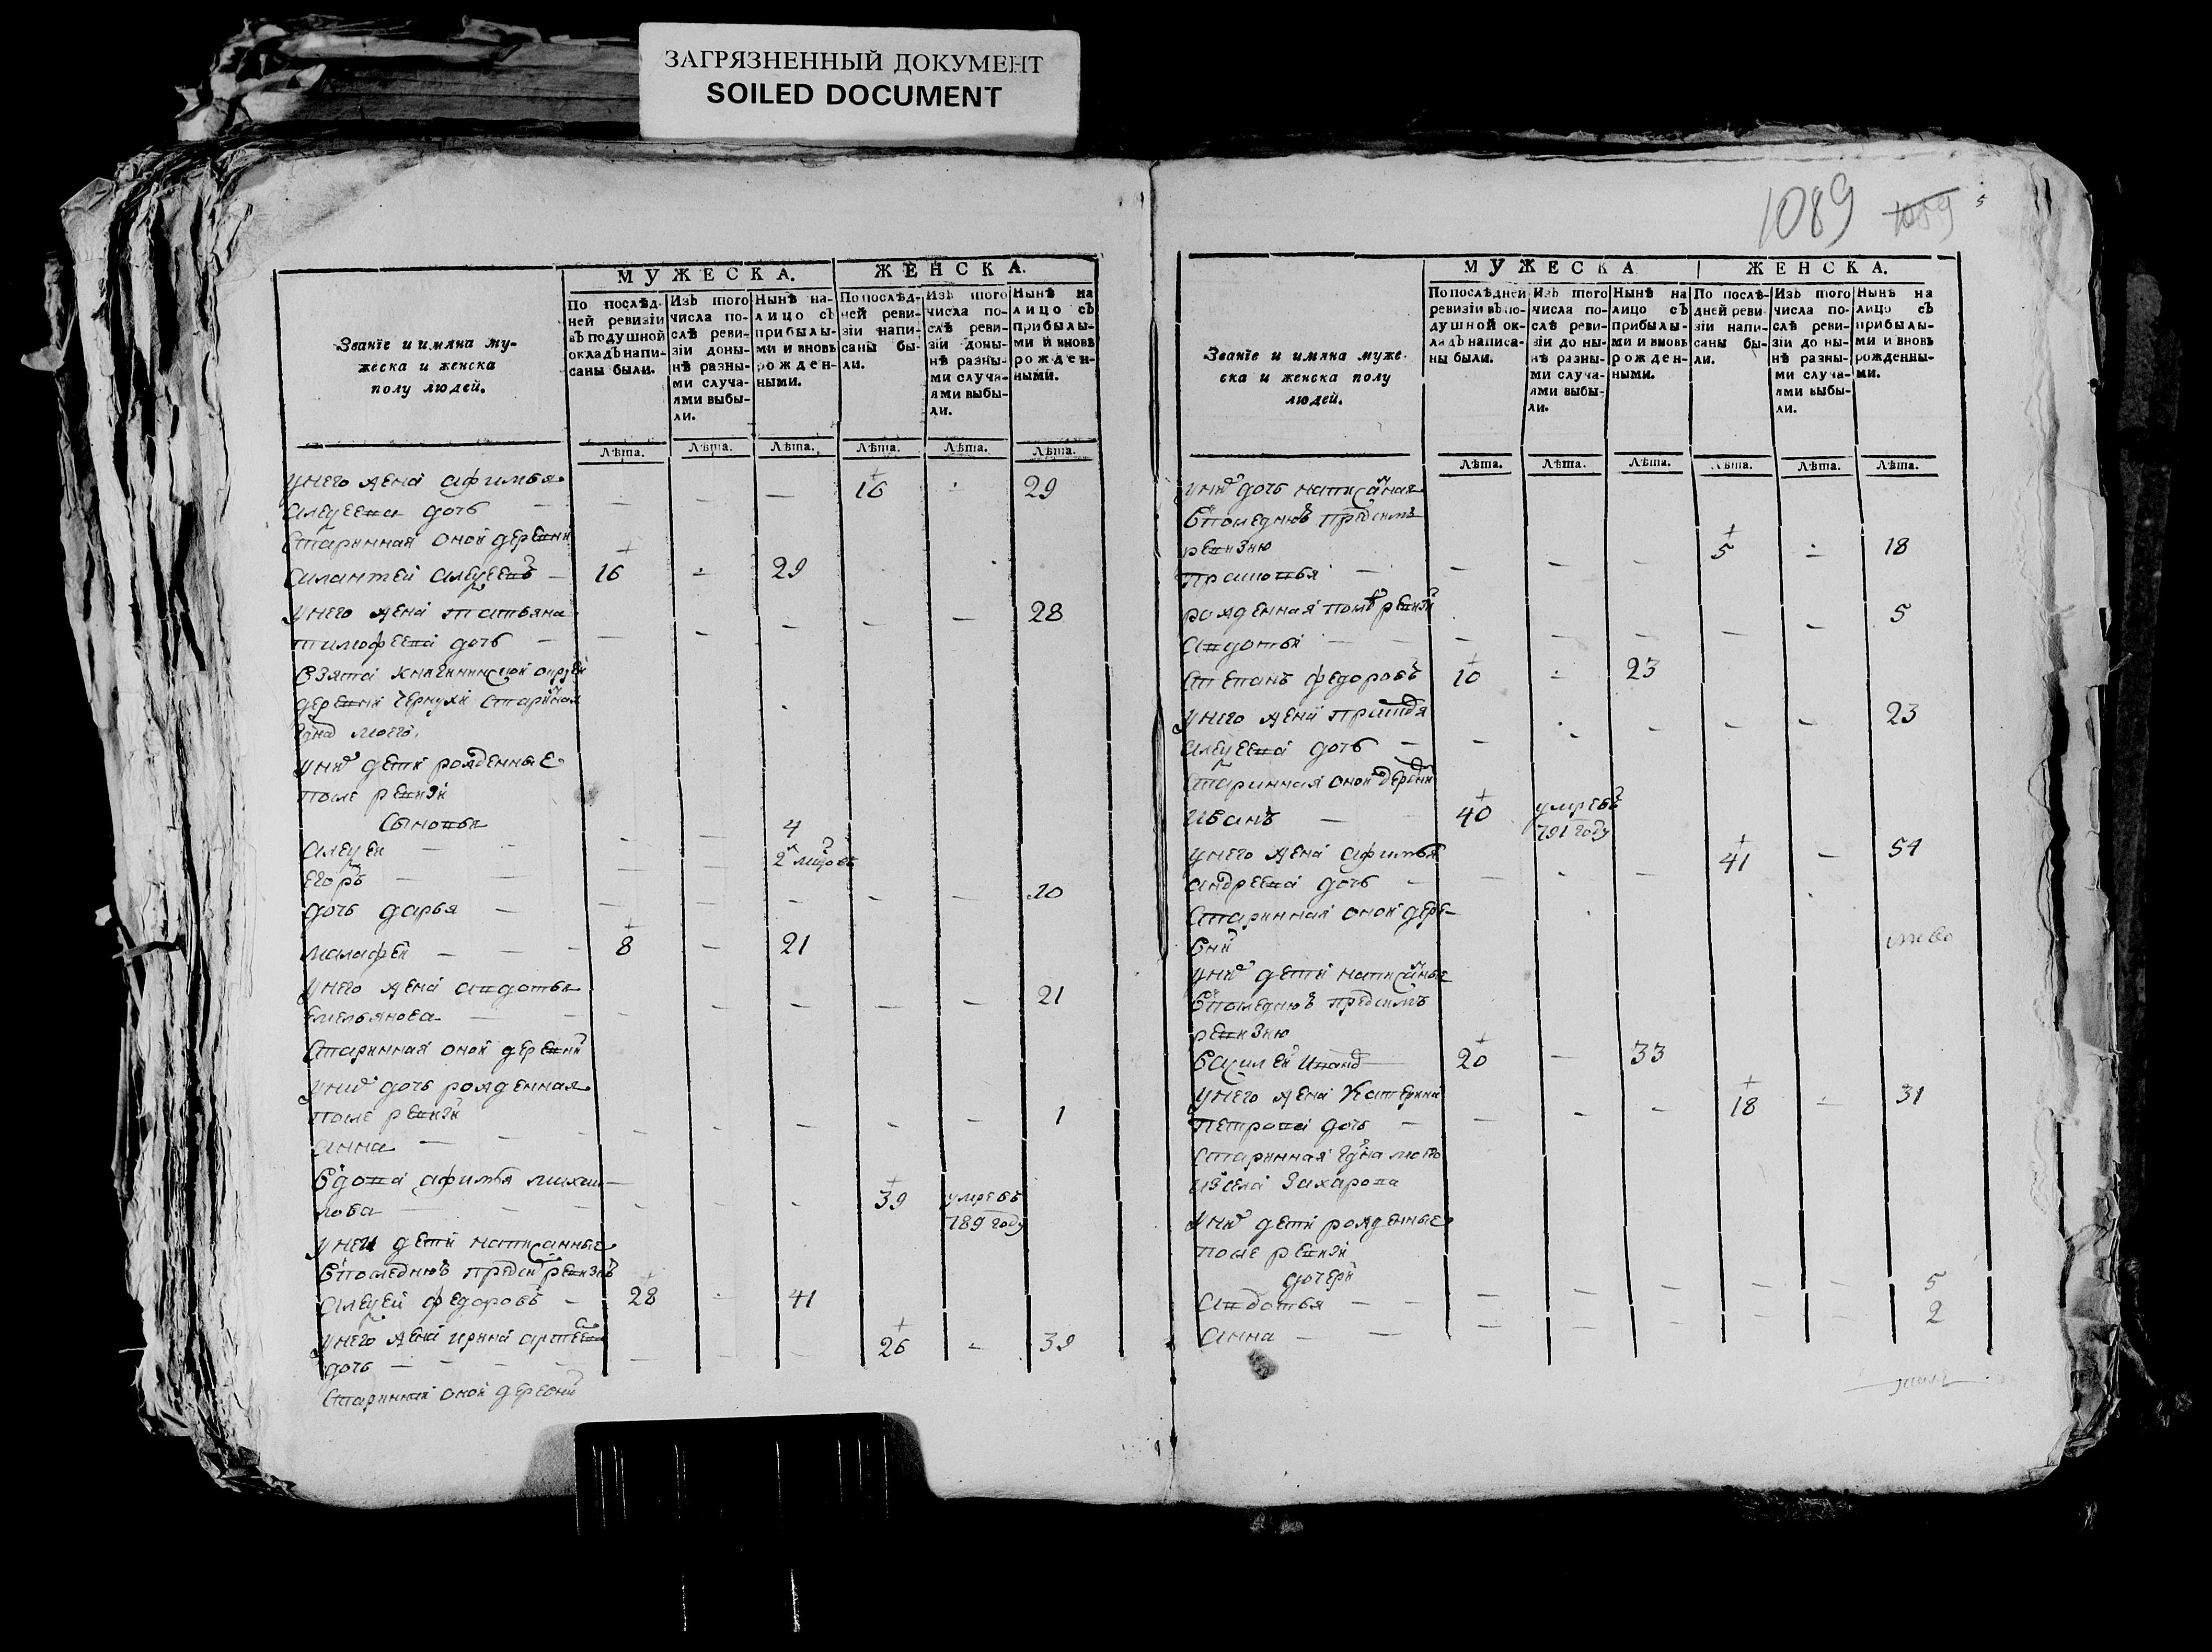 ЗАГРЯЗНЕННЫЙ ДОКУМЕНТ
SOILED DOCUMENT
Званіе и имяна му-
жеска и женска
полу людей.
МУЖЕСКА.
ЖЕНСКА.
По послѣд-
ней ревизіи
въ подушной
окладъ напи-
саны были.
Изъ того
числа по-
слѣ реви-
зіи доны-
нѣ разны-
ми случа-
ями выбы-
ли.
Нынѣ на-
лицо съ
прибылы-
ми и вновь
рожден-
ными.
По послѣд-
ней реви-
зіи напи-
саны бы-
ли.
Изъ того
числа по-
слѣ реви-
зіи доны-
нѣ разны-
ми случа-
ями выбы-
ли.
Нынѣ на
лицо съ
прибылы-
ми и вновь
рожден-
ными.
Лѣта. Лѣта. Лѣта. Лѣта. Лѣта. Лѣта.
у него жена афимья
алексеева дочь — — — — 16 — 29
старинная оной деревни
силантей алексеевъ — 16 — 29
у него жена татьяна
тимофеева дочь — — — — — — 28
взята княгининской округи
деревни чернухи старинная
моего.
у них дети рожденные
после ревизи
сыновья
алексей — — — 4
егоръ — — — 2
дочь дарья — — — — — — 10
малафей — 8 — 21
у него жена авдотья
емельянова — — — — — — 21
старинная оной деревни
у них дочь рожденная
после ревизи
анна — — — — — — 1
вдова афимья михаи-
лова — — — — 39 умре въ
789 году
у неи дети написанные
в последнюю пред сим ревизию
алексей федоровъ — 28 — 41
у него жена ирина артеева
дочь — — — — 26 — 39
старинная оной деревни
1089 1089
5
Званіе и имяна муже-
ска и женска полу
людей.
МУЖЕСКА
ЖЕНСКА.
По послѣдней
ревизіи въ по-
душной ок-
ладъ написа-
ны были.
Изъ того
числа по-
слѣ реви-
зіи до ны-
нѣ разны-
ми случа-
ями выбы-
ли.
Нынѣ на
лицо съ
прибылы-
ми и вновь
рожден-
ными.
По послѣ-
дней реви-
зіи напи-
саны бы-
ли.
Изъ того
числа по-
слѣ реви-
зіи до ны-
нѣ разны-
ми случа-
ями выбы-
ли.
Нынѣ на
лицо съ
прибылы-
ми и вновь
рожденны-
ми.
Лѣта. Лѣта. Лѣта. Лѣта. Лѣта. Лѣта.
у них дочь написаная
в последнюю пред симъ
ревизию
прасковья — — — — 5 — 18
рожденная после ревизи
авдотья — — — — — — 5
степанъ федоровъ 10 — 23
у него жена
алексеева дочь — — — — — — 23
старинная оной деревни
иванъ — 40 умре въ
791 году
у него жена афимья
андреева дочь — — — — 41 — 54
старинная оной дере-
вни
у них дети написаные
в последнюю пред симъ
ревизию
василей иванов 20 — 33
у него жена катерина
петрова дочь — — — — 18 — 31
старинная моего
из села захарова
у них дети рожденные
после ревизи
дочери
авдотья — — — — — — 5
анна — — — — — — 2